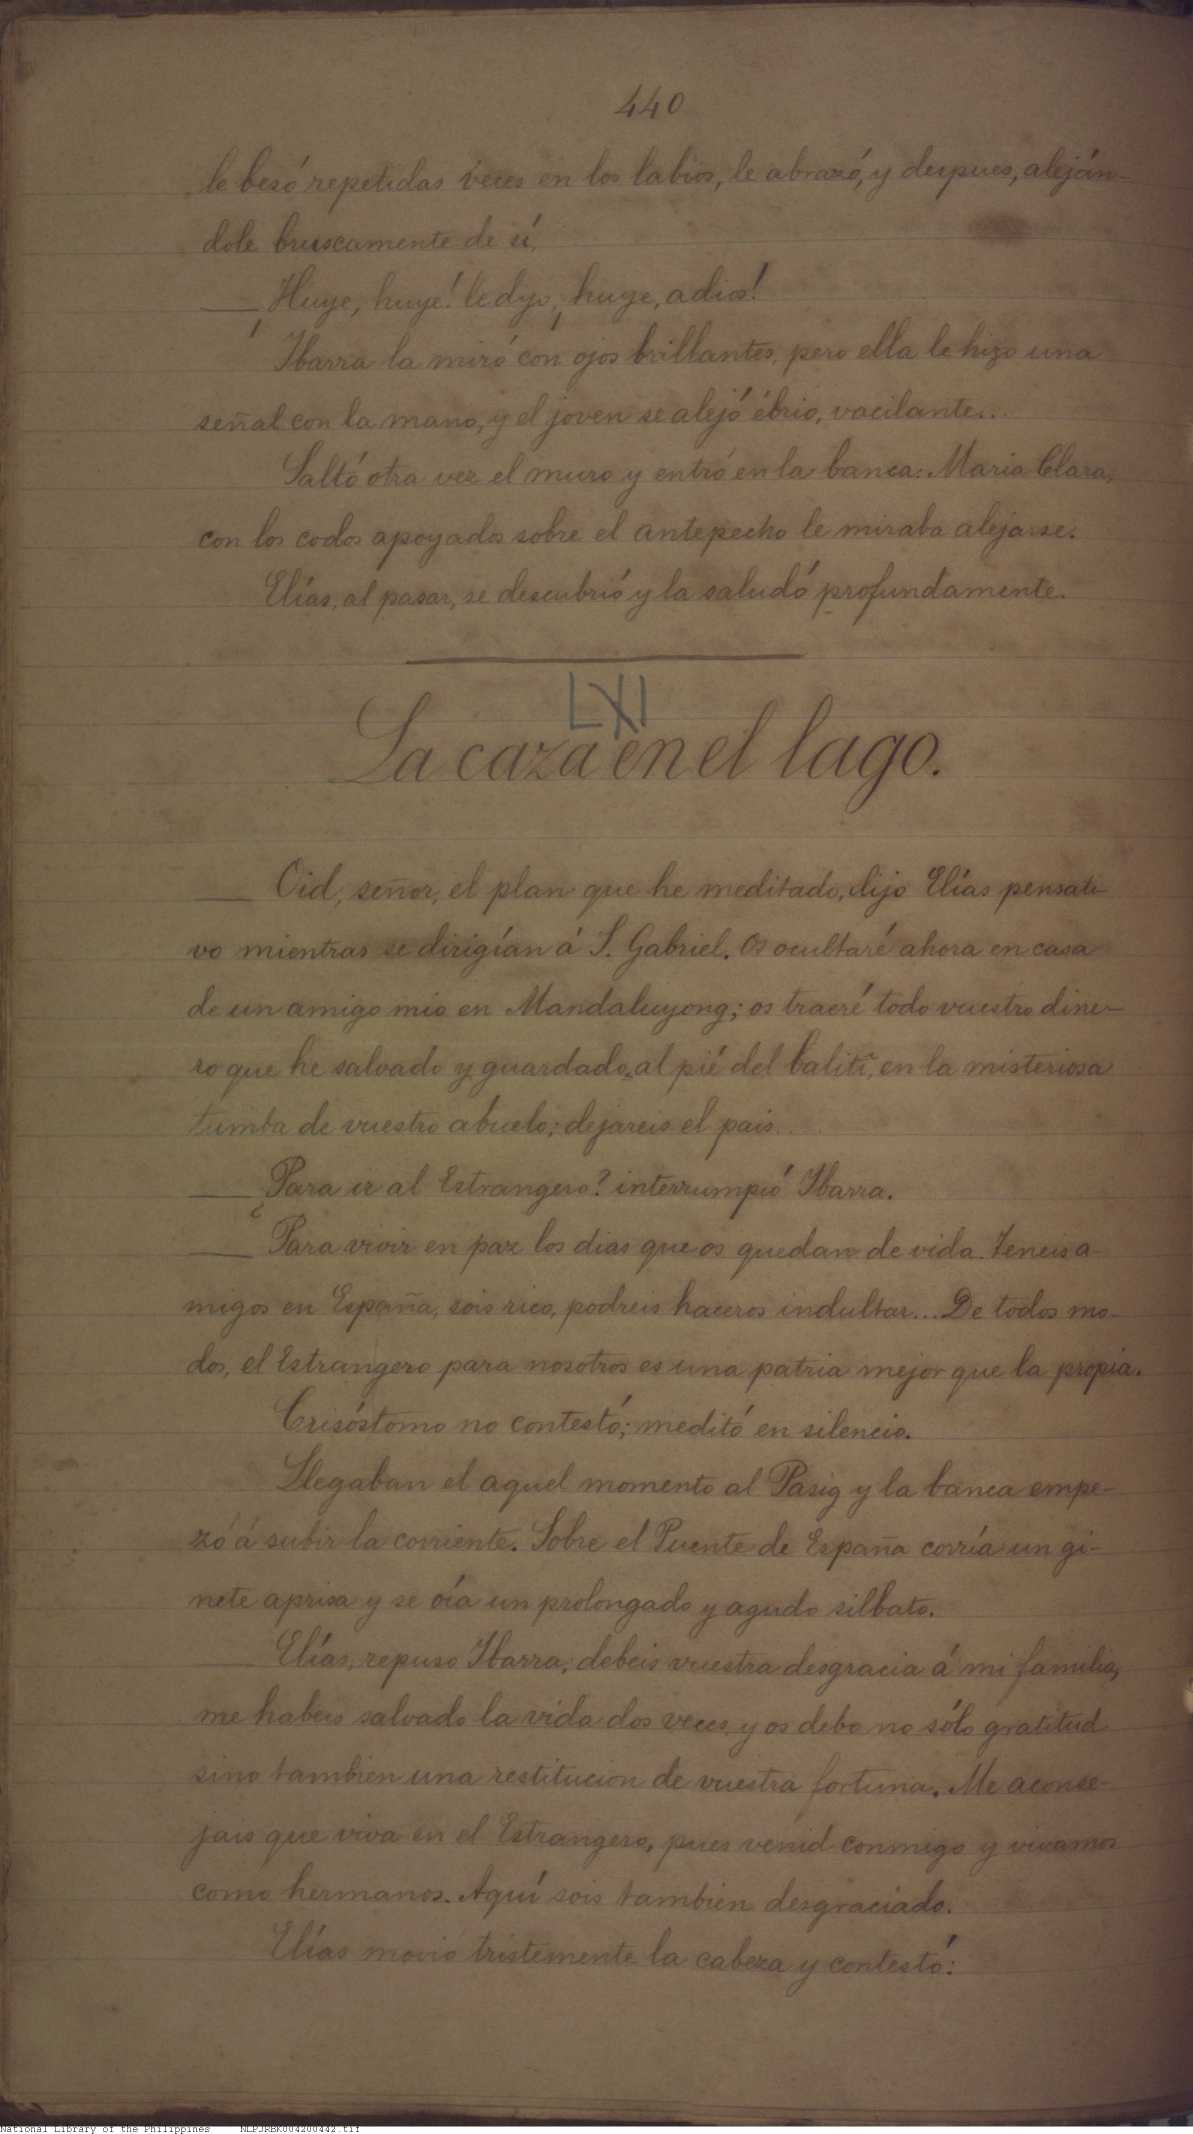 440
le besó repetidas veces en los labios, le abrazó, y despues, aleján-
dole bruscamente de sí,
— ¡Huye, huye! le dijo, ¡huye, adios!
Ibarra la miró con ojos brillantes, pero ella le hizo una
señal con la mano, y el joven se alejó ébrio, vacilante...
Saltó otra vez el muro y entró en la banca: Maria Clara,
con los codos apoyados sobre el antepecho le miraba alejarse.
Elías, al pasar, se descubrió y la saludó profundamente.
LXI
La caza en el lago.
— Oid, señor, el plan que he meditado, dijo Elías pensati-
vo mientras se dirigían á S. Gabriel. Os ocultaré ahora en casa
de un amigo mio en Mandaluyong; os traeré todo vuestro dine-
ro que he salvado y guardado al pié del balitî, en la misteriosa
tumba de vuestro abuelo; dejareis el pais...
— ¿Para ir al Estrangero? interrumpió Ibarra.
— Para vivir en paz los dias que os quedan de vida. Teneis a-
migos en España, sois rico, podreis haceros indultar... De todos mo-
dos, el Estrangero para nosotros es una patria mejor que la propia.
Crisóstomo no contestó; meditó en silencio.
Llegaban el aquel momento al Pasig y la banca empe-
zó á subir la corriente. Sobre el Puente de España corría un gi-
nete aprisa y se oía un prolongado y agudo silbato.
— Elías, repuso Ibarra, debeis vuestra desgracia á mi familia,
me habeis salvado la vida dos veces, y os debo no sólo gratitud
sino tambien una restitucion de vuestra fortuna. Me aconse-
jais que viva en el Estrangero, pues venid conmigo y vivamos
como hermanos. Aquí sois tambien desgraciado.
Elías movió tristemente la cabeza y contestó:
National Library of the Philippines NLPJRBK004200442.tif